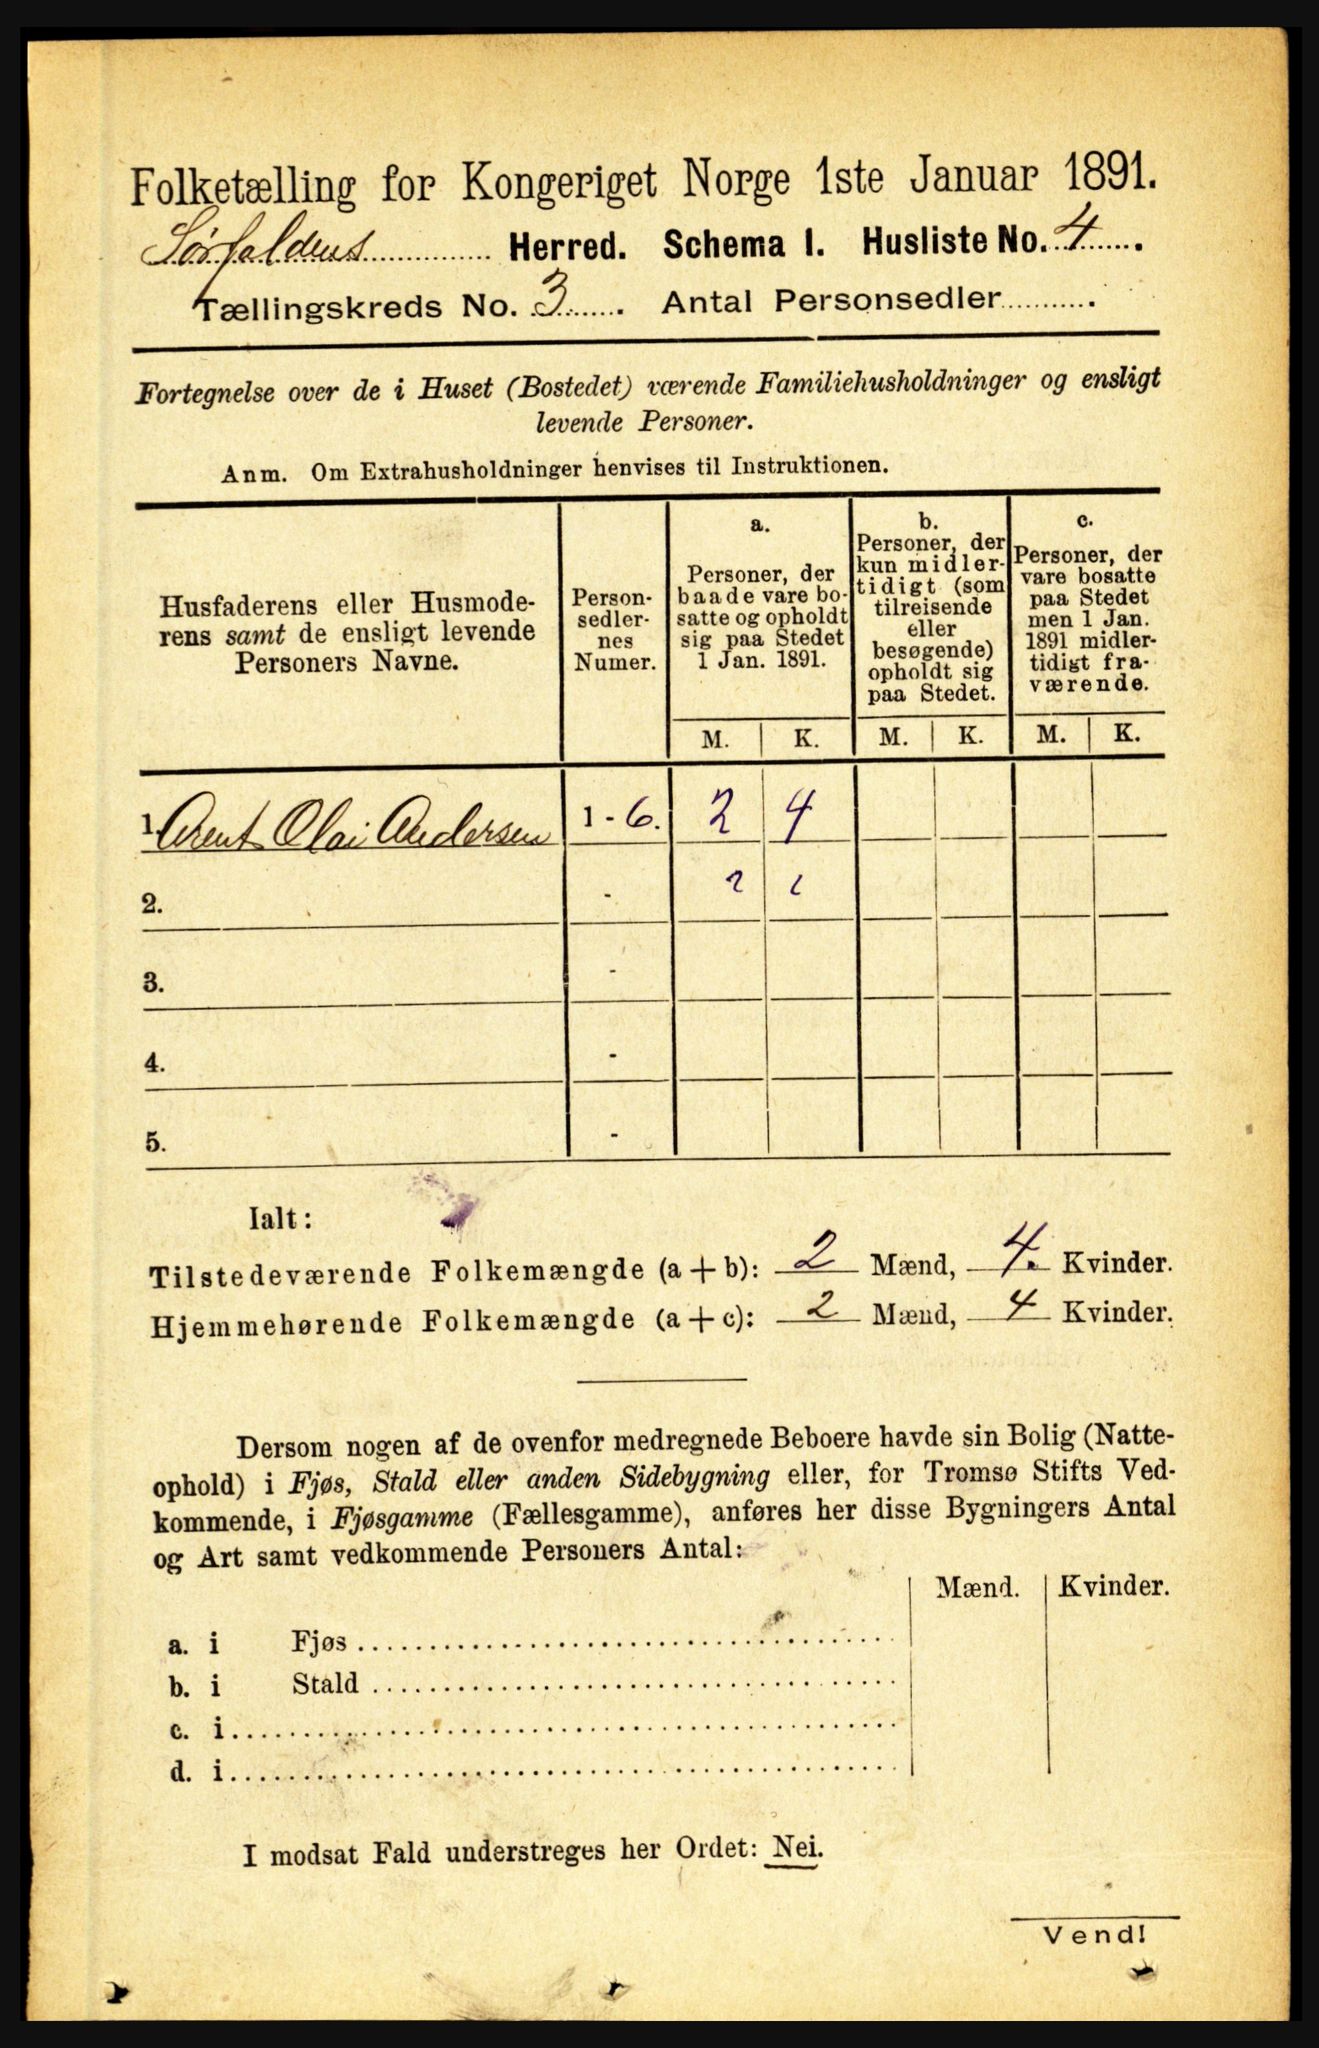 Folketælling for Kongeriget Norge 1ste Januar 1891.
Sørfoldens Herred. Schema I. Husliste No. 4
Tællingskreds No. 3. Antal Personsedler
Fortegnelse over de i Huset (Bostedet) værende Familiehusholdninger og ensligt
levende Personer.
Anm. Om Extrahusholdninger henvises til Instruktionen.
Husfaderens eller Husmode-
rens samt de ensligt levende
Personers Navne.
Person-
sedler-
nes
Numer.
a.
Personer, der
baade vare bo-
satte og opholdt
sig paa Stedet
1 Jan. 1891.
b.
Personer, der
kun midler-
tidigt (som
tilreisende
eller
besøgende)
opholdt sig
paa Stedet.
c.
Personer, der
vare bosatte
paa Stedet
men 1 Jan.
1891 midler-
tidigt fra-
værende.
M. K. M. K. M. K.
1. Arent Olai Andersen 1 - 6. 2 4
2. -
3. -
4. -
5. -
Ialt:
Tilstedeværende Folkemængde (a + b): 2 Mænd, 4. Kvinder.
Hjemmehørende Folkemængde (a + c): 2 Mænd, 4 Kvinder.
Dersom nogen af de ovenfor medregnede Beboere havde sin Bolig (Natte-
ophold) i Fjøs, Stald eller anden Sidebygning eller, for Tromsø Stifts Ved-
kommende, i Fjøsgamme (Fællesgamme), anføres her disse Bygningers Antal
og Art samt vedkommende Personers Antal:
Mænd. Kvinder.
a. i Fjøs
b. i Stald
c. i
d. i
I modsat Fald understreges her Ordet: Nei.
Vend!